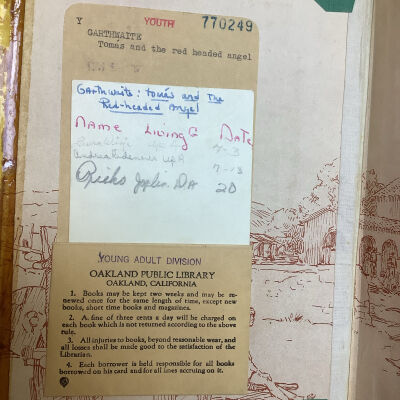 Y YOUTH 770249
GARTHWAITE
Tomás and the red headed angel
GARthwaite: Tomás and The
Red-headed Angel
NAME LIVING DATE
7-3
7-13
Joplin 20
YOUNG ADULT DIVISION
OAKLAND PUBLIC LIBRARY
OAKLAND, CALIFORNIA
1. Books may be kept two weeks and may be re-
newed once for the same length of time, except new
books, short time books and magazines.
2. A fine of three cents a day will be charged on
each book which is not returned according to the above
rule.
3. All injuries to books, beyond reasonable wear, and
all losses shall be made good to the satisfaction of the
Librarian.
4. Each borrower is held responsible for all books
borrowed on his card and for all fines accruing on it.